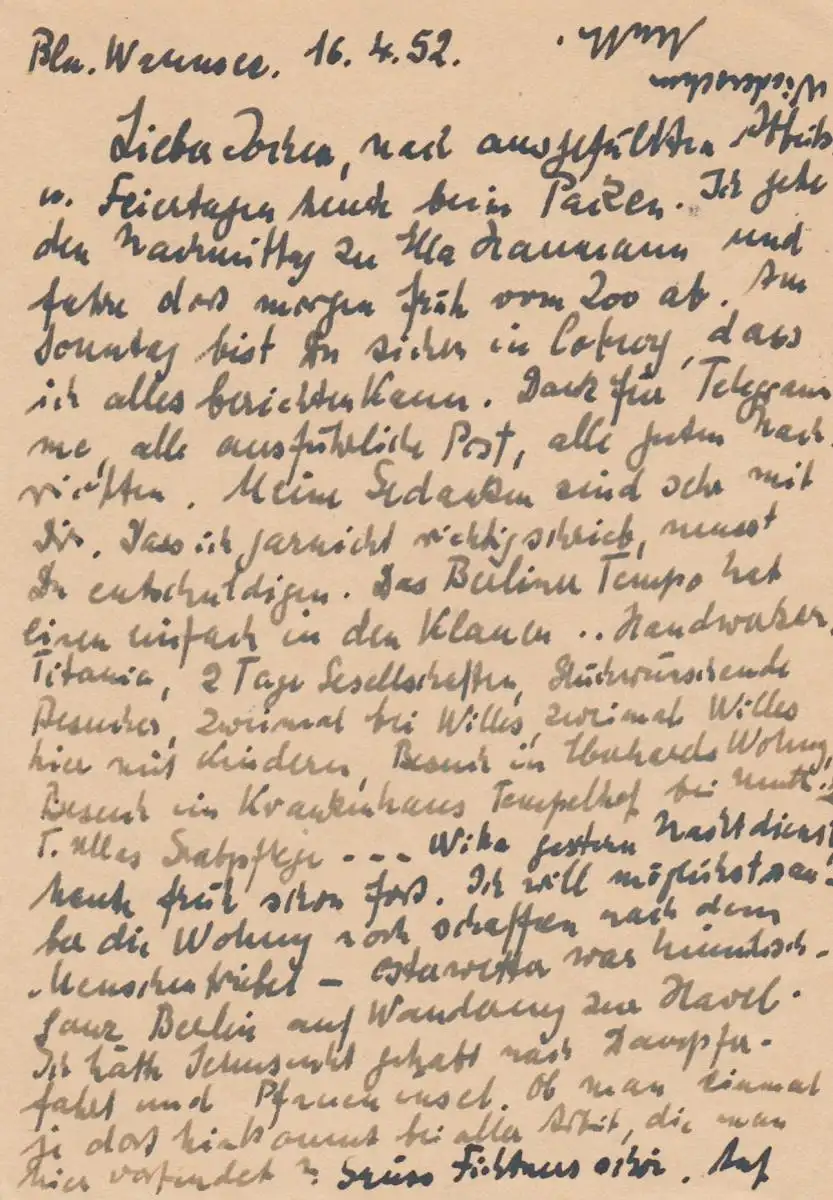 Bln. Wannsee. 16. 4. 52.
Lieber Jochen, nach ausgefüllten Arbeits
u. Feiertagen heute beim Packen. Ich gehe
den Nachmittag zu Ella und
fahre dort morgen früh vom Zoo ab. Am
Sonntag bist Du sicher in Coburg, dass
ich alles berichten kann. Dank für Telegram
me, alle ausführliche Post, alle guten Nach
richten. Meine Gedanken sind sehr mit
Dir. Dass ich garnicht richtig schrieb, musst
Du entschuldigen. Das Berliner Tempo hat
einen einfach in den Klauen .. Handwerker,
Titania, 2 Tage Gesellschaften, Glückwünschende
Besucher, zweimal bei Willes, zweimal Willes
hier mit Kindern, Besuch in Eberhards Wohng,
Besuch im Krankenhaus Tempelhof bei
T. Ellas Grabpflege - - - gestern Nachtdienst
heute früh schon fort. Ich will möglichst sau-
ber die Wohng noch schaffen nach dem
Menschentrubel – Osterwetter war himmlisch.
Ganz Berlin auf Wanderung zur Havel.
Ich hätte Sehnsucht gehabt nach Dampfer-
fahrt und Pfaueninsel. Ob man einmal
je dort hinkommt bei aller Arbeit, die man
hier vorfindet? Grüss Fichtners schön. Auf
Wiedersehen